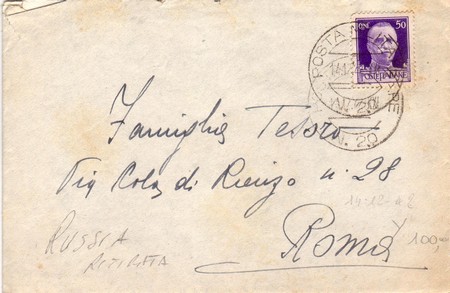 50
POSTA
N. 20
POSTE ITALIANE
N. 20
Famiglia Tesoro
Via Cola di Rienzo n. 28
14-12-42
Roma
100,-
RUSSIA
RITIRATA